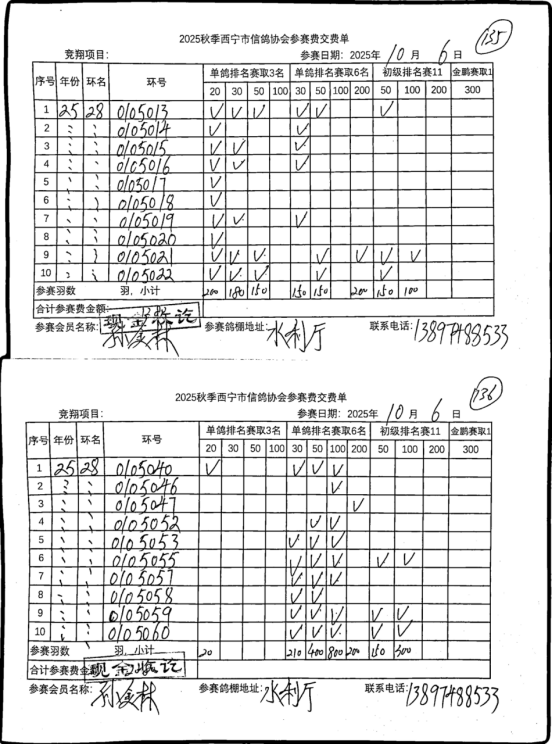 135
2025秋季西宁市信鸽协会参赛费交费单
竞翔项目： 参赛日期：2025年 10 月 6 日
序号 年份 环名 环号 单鸽排名赛取3名 单鸽排名赛取6名 初级排名赛11 金鹏赛取1
20 30 50 100 30 50 100 200 50 100 200 300
1 25 28 0105013 ✓ ✓ ✓ ✓ ✓ ✓
2 〃 〃 0105014 ✓ ✓
3 〃 〃 0105015 ✓ ✓ ✓
4 〃 〃 0105016 ✓ ✓ ✓
5 〃 〃 0105017 ✓
6 〃 〃 0105018 ✓
7 〃 〃 0105019 ✓ ✓ ✓
8 〃 〃 0105020 ✓
9 〃 〃 0105021 ✓ ✓ ✓ ✓ ✓ ✓ ✓
10 〃 〃 0105022 ✓ ✓ ✓ ✓ ✓
参赛羽数 羽，小计 200 180 150 150 150 200 150 100
合计参赛费金额：
现金收讫
参赛会员名称： 参赛鸽棚地址：水利厅 联系电话：13897488533
136
2025秋季西宁市信鸽协会参赛费交费单
竞翔项目： 参赛日期：2025年 10 月 6 日
序号 年份 环名 环号 单鸽排名赛取3名 单鸽排名赛取6名 初级排名赛11 金鹏赛取1
20 30 50 100 30 50 100 200 50 100 200 300
1 25 28 0105040 ✓ ✓ ✓ ✓
2 〃 〃 0105046 ✓
3 〃 〃 0105047 ✓
4 〃 〃 0105052 ✓ ✓
5 〃 〃 0105053 ✓ ✓ ✓
6 〃 〃 0105055 ✓ ✓ ✓ ✓ ✓
7 〃 〃 0105057 ✓ ✓ ✓
8 〃 〃 0105058 ✓ ✓
9 〃 〃 0105059 ✓ ✓ ✓ ✓ ✓
10 〃 〃 0105060 ✓ ✓ ✓ ✓ ✓
参赛羽数 羽，小计 20 210 400 800 200 150 300
合计参赛费金额
现金收讫
参赛会员名称： 参赛鸽棚地址：水利厅 联系电话：13897488533